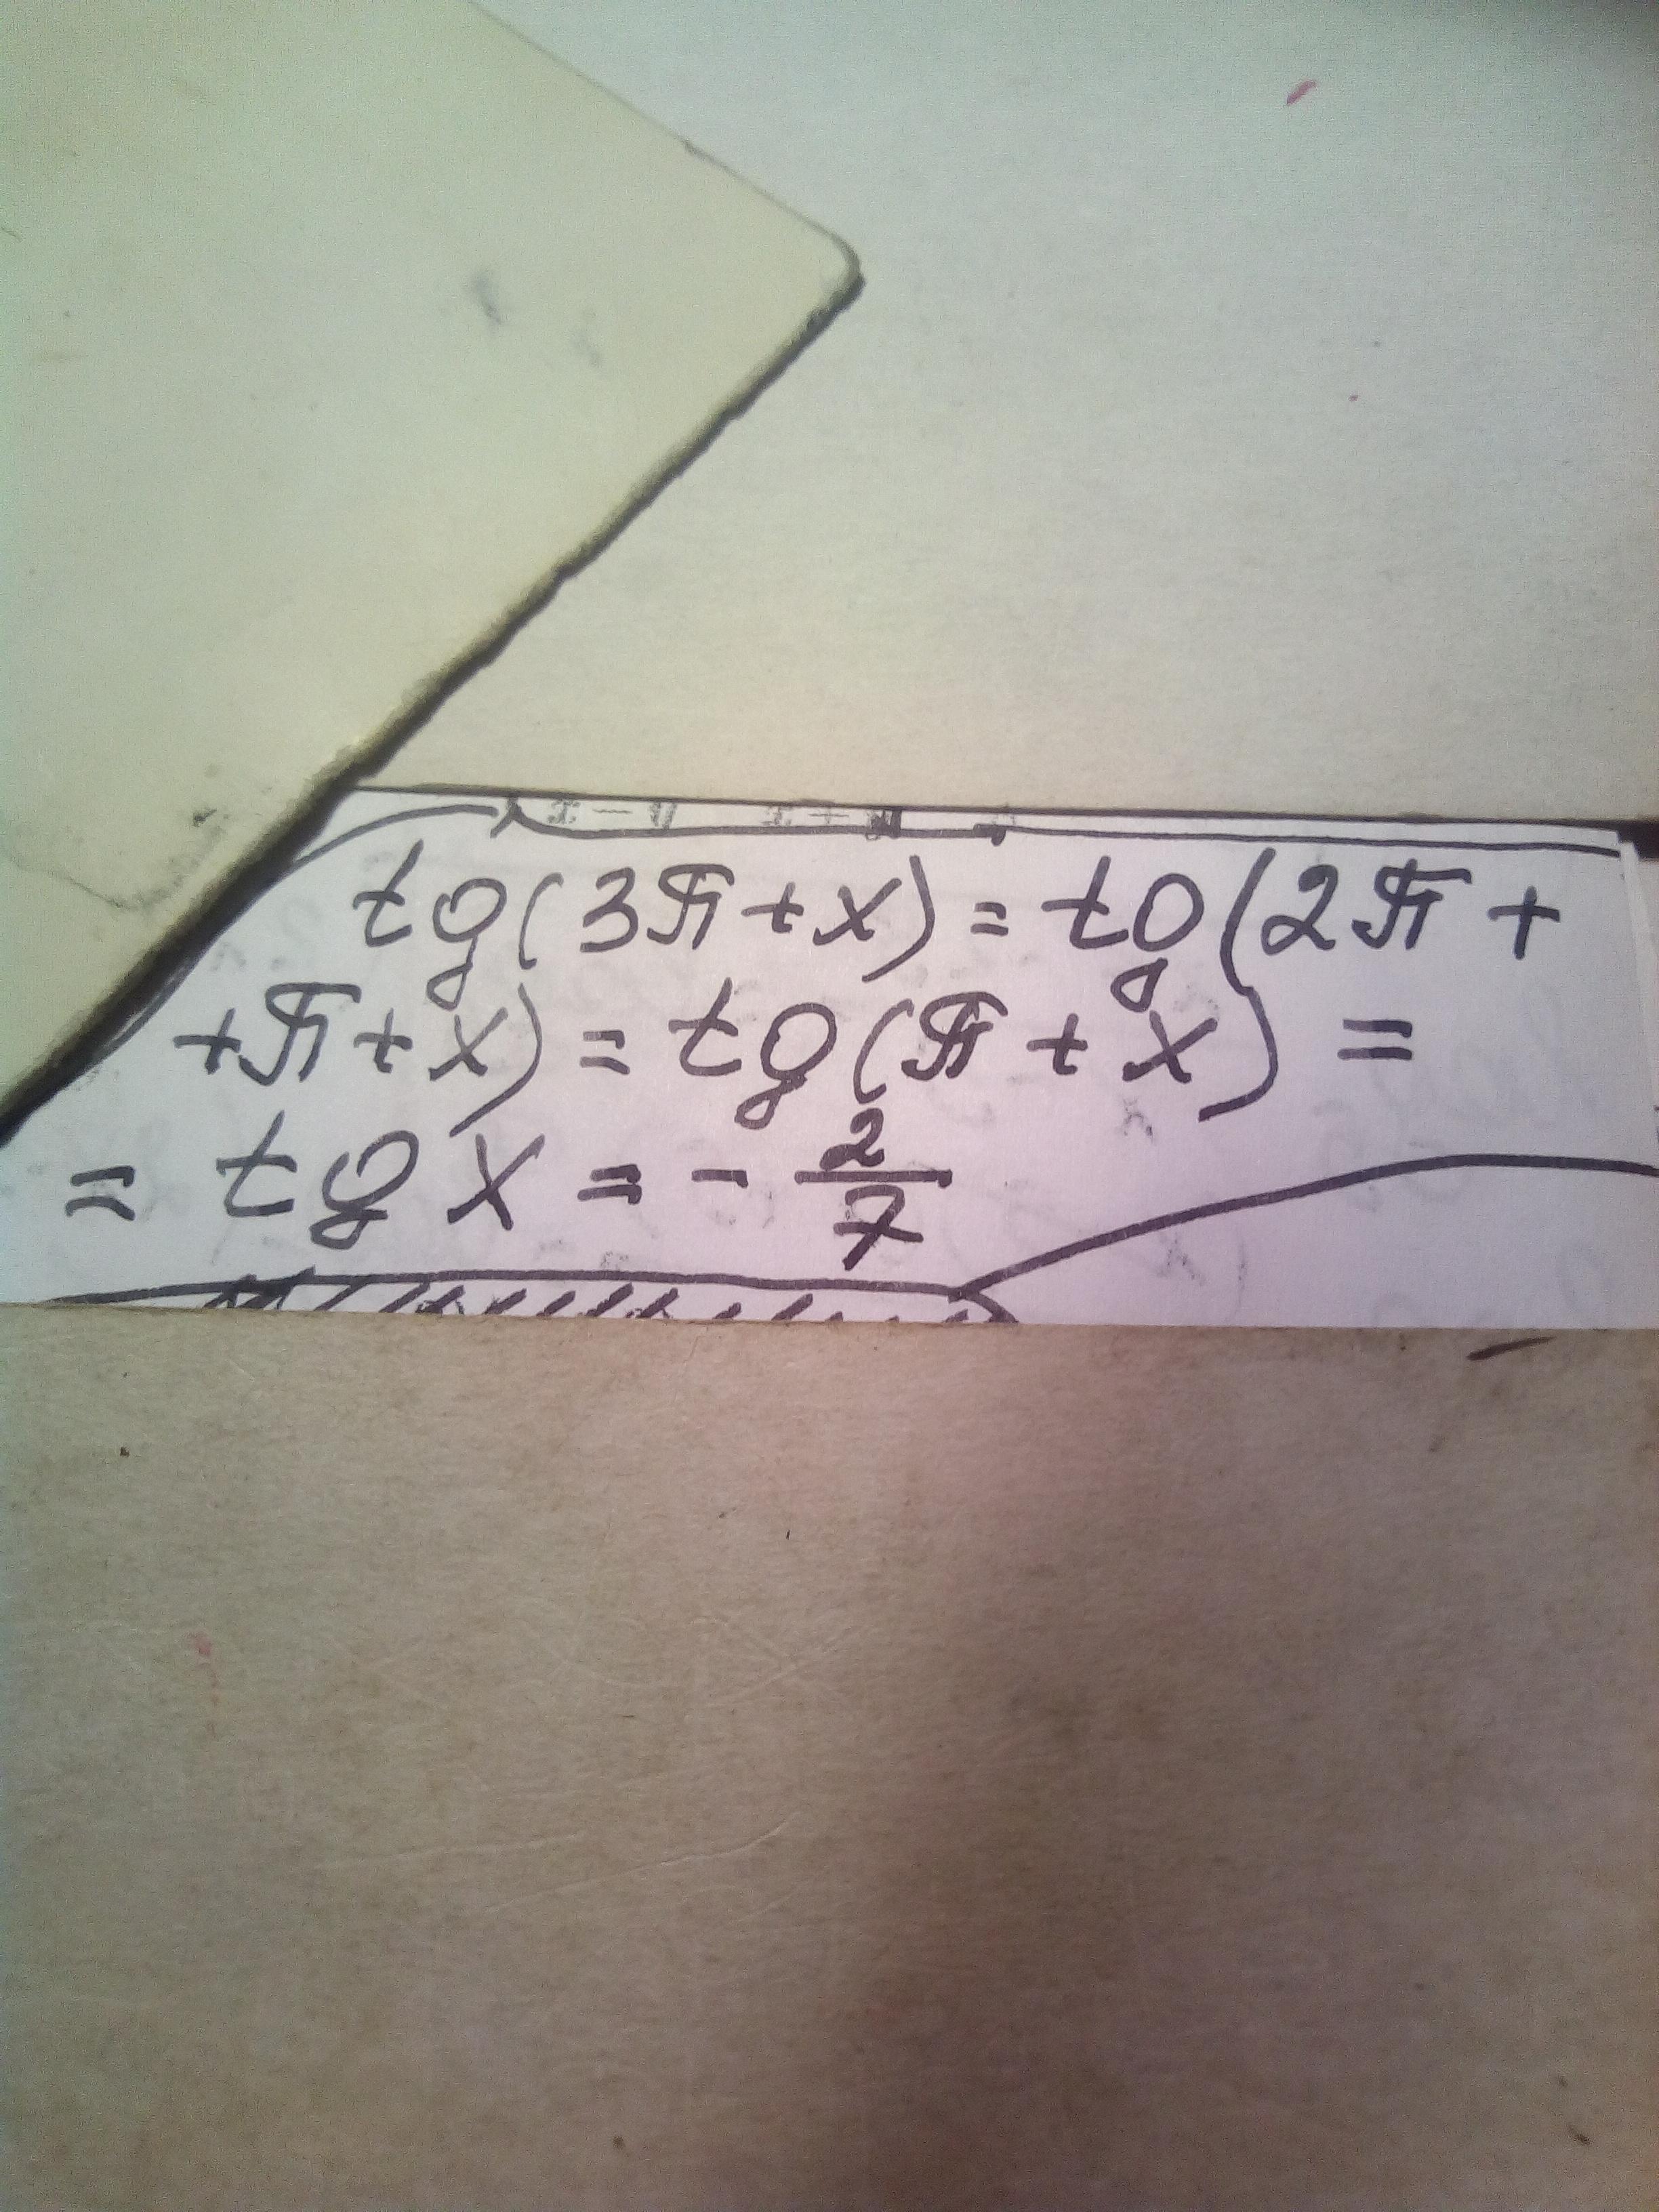 x − y x + y
tg(3π+x) = tg(2π +
+π+x) = tg(π + x) =
= tg x = - 2/7